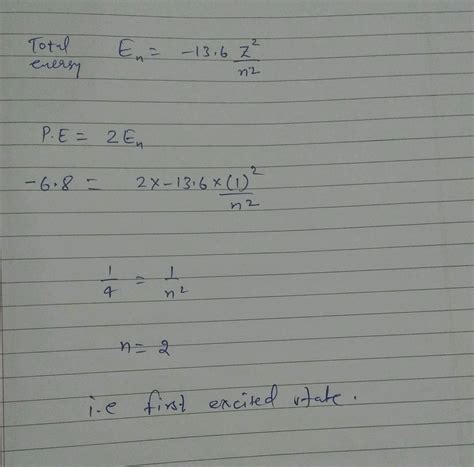 Total energy Eₙ = -13.6 Z²/n²
P.E = 2Eₙ
-6.8 = 2x-13.6x(1)²/n²
1/4 = 1/n²
n = 2
i.e first excited state.